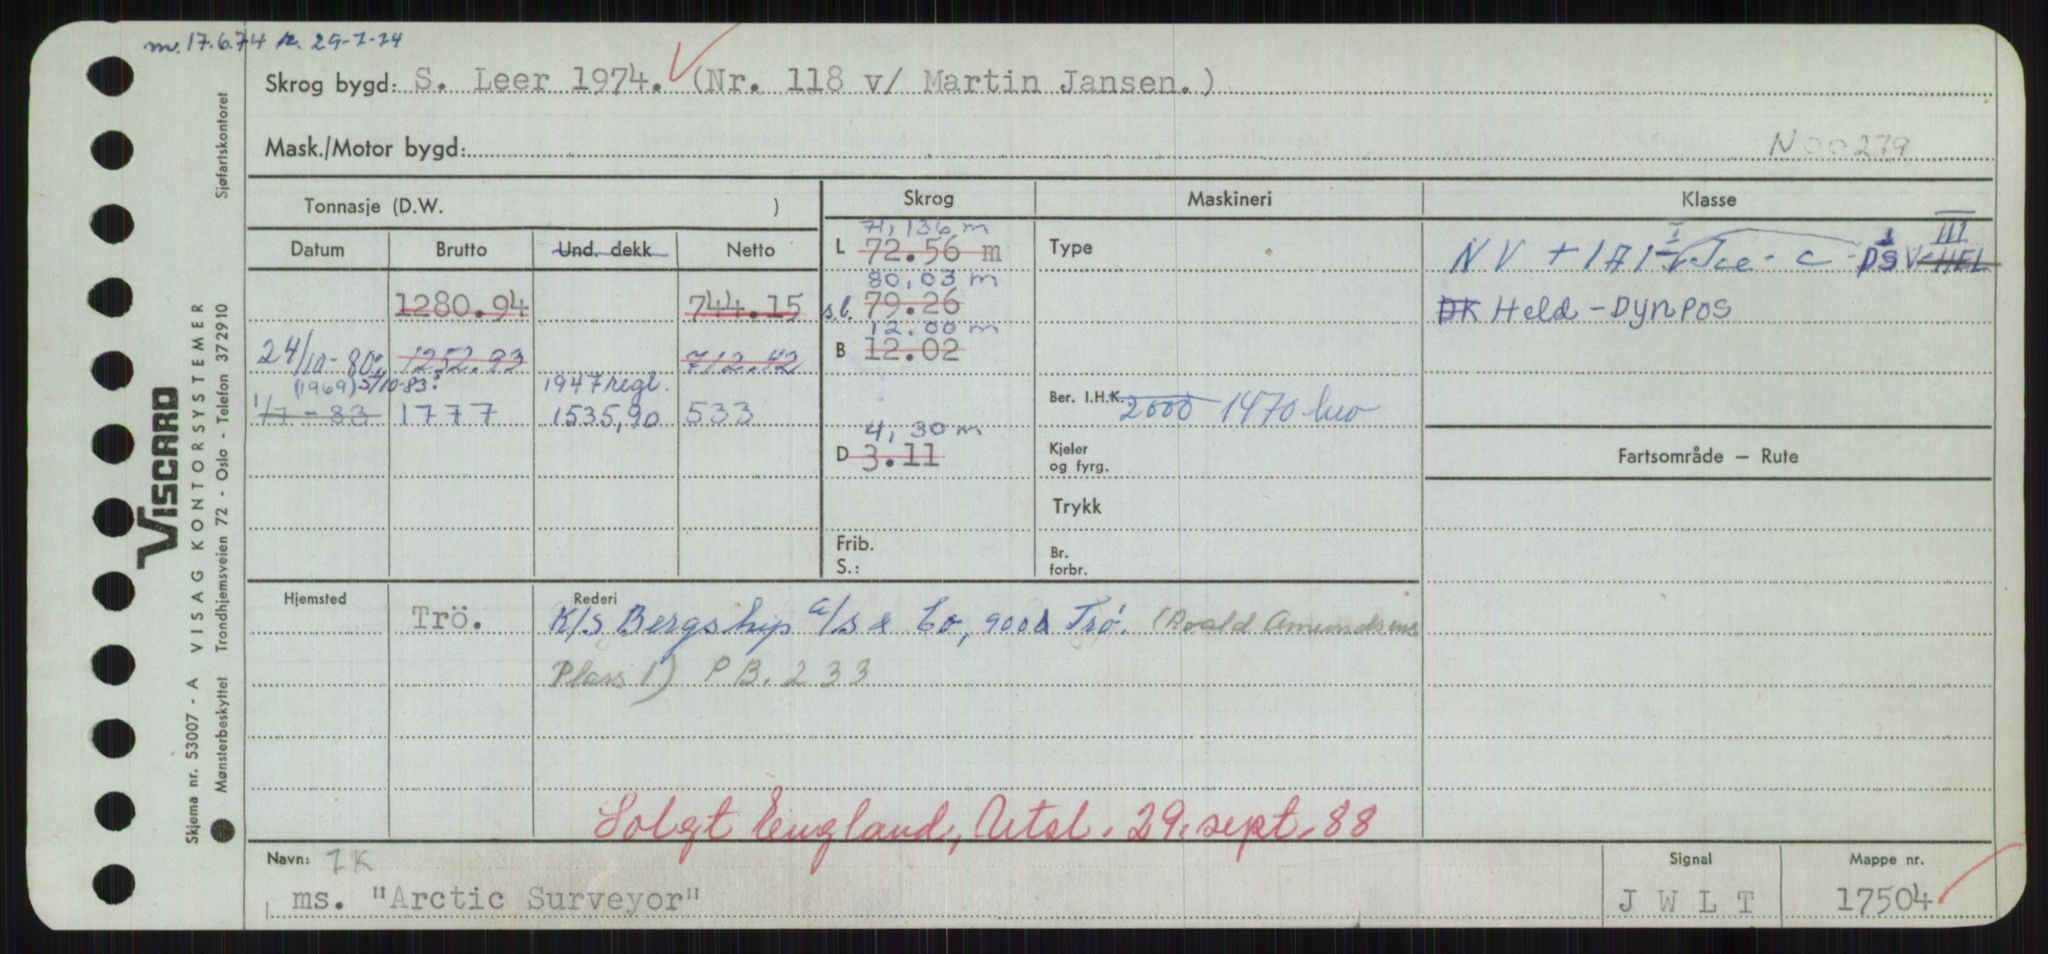 m. 17.6.74 k. 29-7-74
Skrog bygd: S. Leer 1974. (Nr. 118 v/ Martin Jansen.)
Mask./Motor bygd:
N 00279
Tonnasje (D.W. )
Skrog
Maskineri
Klasse
Datum
Brutto
Und. dekk
Netto
71,136 m
L 72.56 m
Type
NV + 1A1 Ice - C DSV-HEL III
1280.94
744.15
80,03 m
s.l. 79.26
DK Held - DYNPOS
24/10-80: 1252.93
712.42
12.00 m
B 12.02
(1969) 5/10-83:
1947 regl.
1/7-83
1777
1535,90
533
Ber. I.H.K. 2000 1470
4,30 m
D 3.11
Kjeler og fyrg.
Fartsområde — Rute
Trykk
Frib.
S.:
Br. forbr.
Hjemsted
Rederi
Trö.
K/S Bergship a/s & Co, 9001 Trö. (Roald Amundsens
Plass 1) P B. 233
Solgt England, Utsl. 29. sept. 88
Navn: 7K
Signal
Mappe nr.
ms. "Arctic Surveyor"
J W L T
17504
VISCARD
Skjema nr. 53007 - A VISAG KONTORSYSTEMER
Mønsterbeskyttet Trondhjemsveien 72 - Oslo - Telefon 372910 Sjøfartskontoret